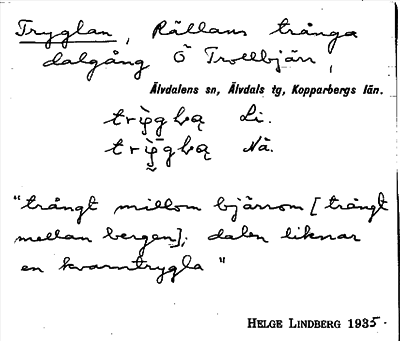 Tryglan, Rällans trånga
dalgång Ö Trollbjärr,
Älvdalens sn, Älvdals tg, Kopparbergs län.
Li.
Nä.
"trångt millom bjärrom [trångt
mellan bergen]; dalen liknar
en kvarntrygla"
HELGE LINDBERG 1935.